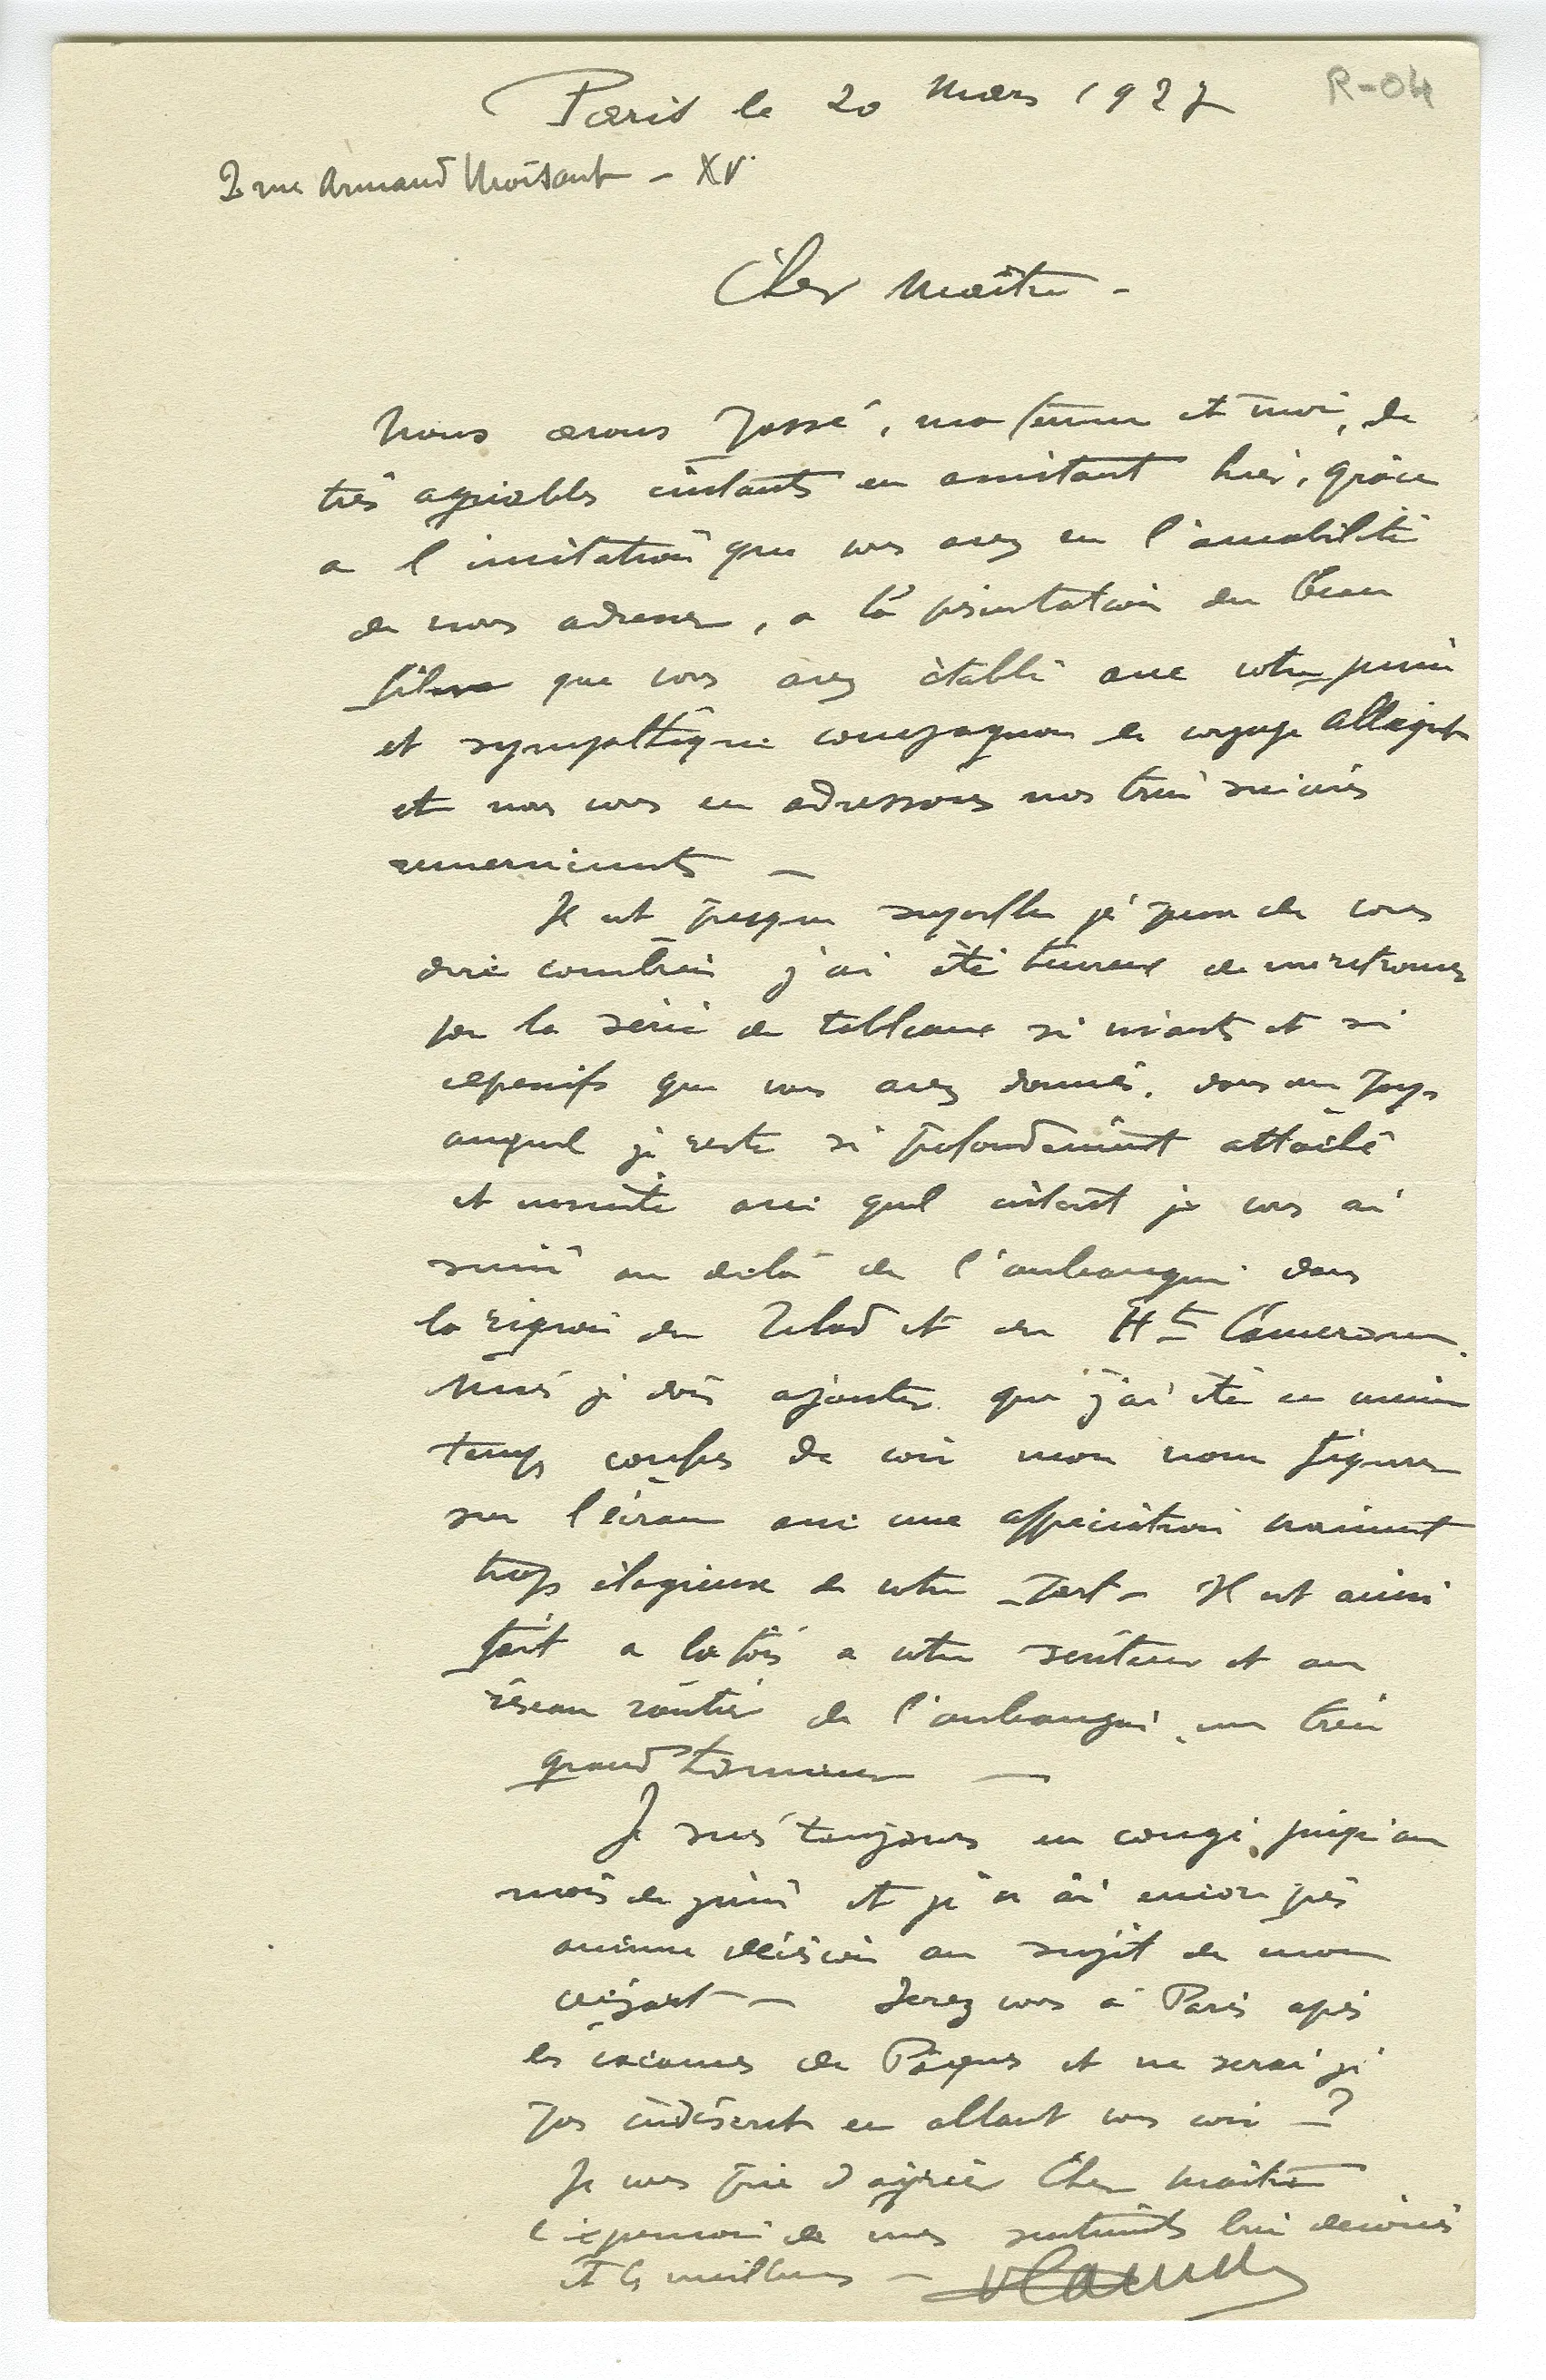 R-04
Paris le 20 Mars 1927
2 rue Armand Moisant - XVe
Cher Maître -
Nous avons passé, ma femme et moi, de
très agréables instants en assistant hier, grâce
a l'invitation que vous avez eu l'amabilité
de nous adresser, a la présentation du beau
film que vous avez établi avec votre jeune
et sympathique compagnon de voyage Allégret
et nous vous en adressons nos très sincères
remerciements —
Il est presque superflu je pense de vous
dire combien j'ai été heureux de me retrouver
par la série de tableaux si vivants et si
expressifs que vous avez donnés, dans un pays
auquel je reste si profondément attaché
et ensuite avec quel intérêt je vous ai
suivi au delà de l'oubangui dans
la région du Tchad et du Ht Cameroun.
Mais je dois ajouter que j'ai été en même
temps confus de voir mon nom figurer
sur l'écran avec une appréciation vraiment
trop élogieuse de votre part - Il est ainsi
fait a la fois a votre serviteur et au
réseau routier de l'oubangui, un très
grand honneur —
Je suis toujours en congé jusqu'au
mois de juin et je n'ai encore pris
aucune décision au sujet de mon
départ - Serez vous à Paris après
les vacances de Pâques et ne serai je
pas indiscret en allant vous voir - ?
Je vous prie d'agréer Cher Maître
l'expression de mes sentiments bien dévoués
et les meilleurs -